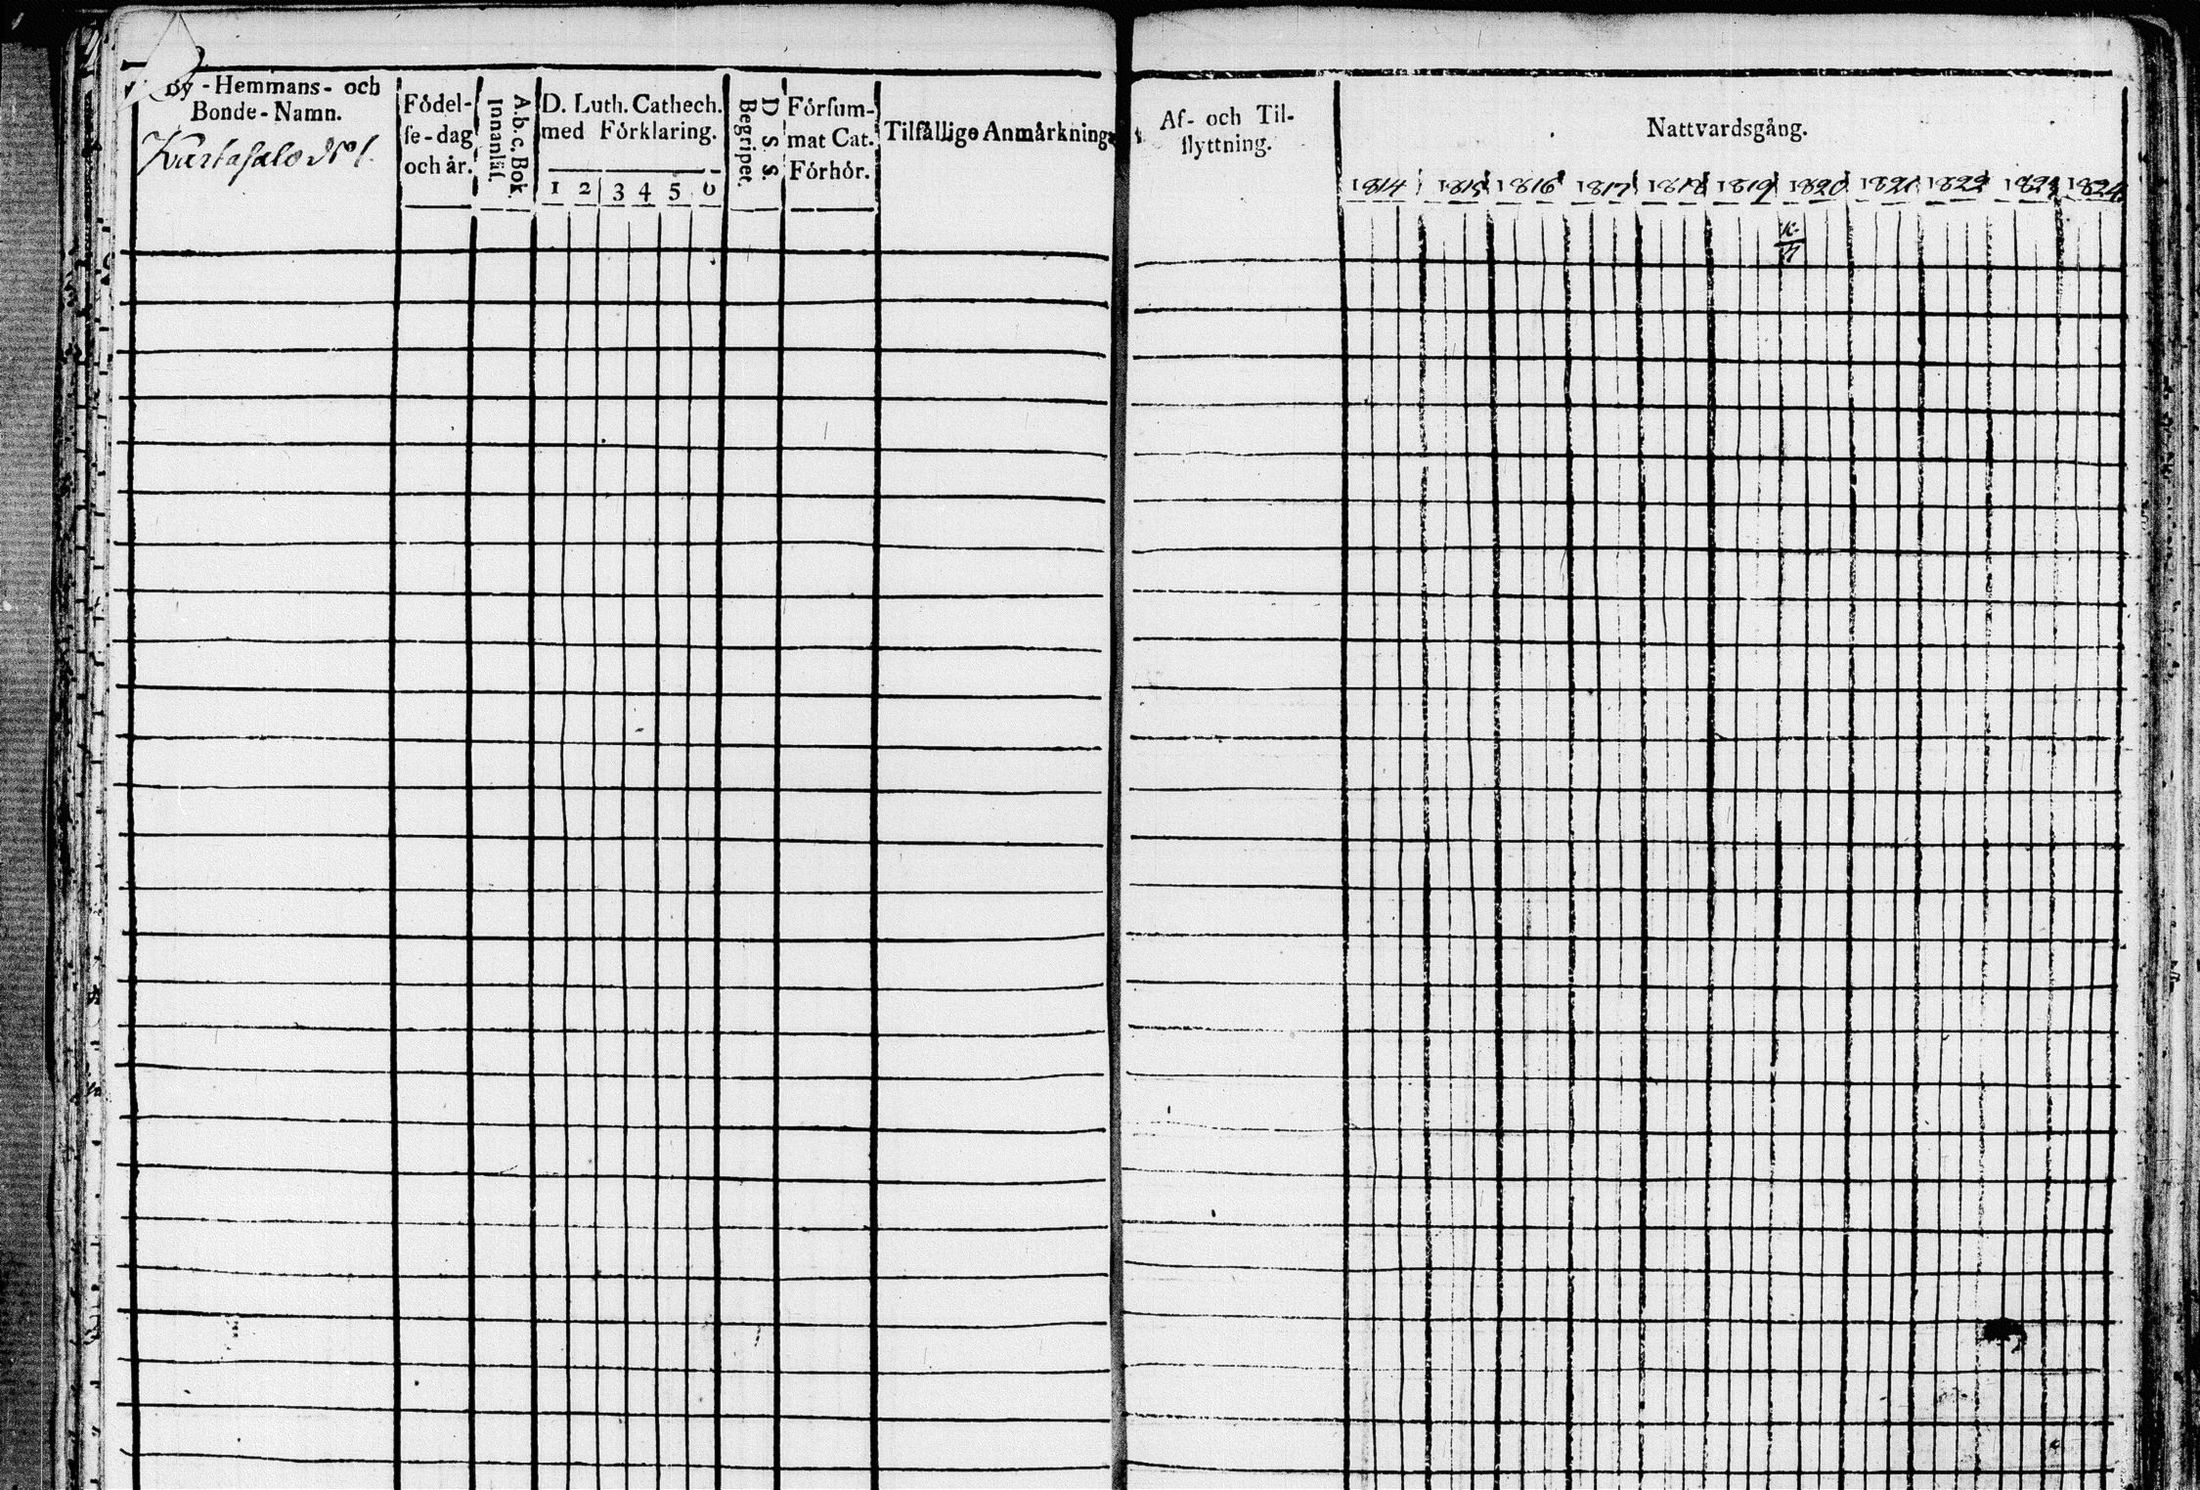 By-Hemmans- och
Bonde-Namn.
Kartasalo N:o 1.
Födel-
ſe-dag
och år.
A. b. c, Bok.
Innanläſ.
D. Luth. Cathech.
med Förklaring.
1 2 3 4 5 6
D. S. S.
Begripet.
Förſum-
mat Cat.
Förhör.
Tilfällige Anmärkning
Af- och Til-
flyttning.
Nattvardsgång.
1814 1815 1816 1817 1818 1819 1820 1821 1822 1823 1824